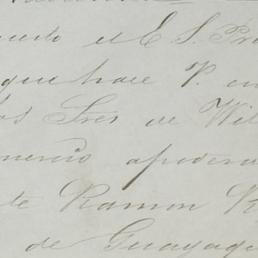 uesto el E S. Pre
que hace P. en
los Sres de Wil
mercio apodera
te Ramon R
de Guayaq